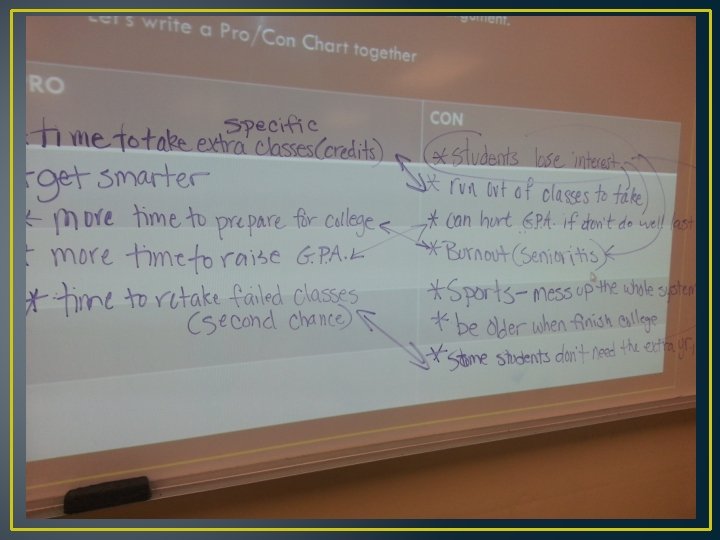 argument.
Let's write a Pro/Con Chart together
RO
specific
time to take extra classes (credits)
get smarter
more time to prepare for college
more time to raise G.P.A.
* time to retake failed classes
(second chance)
CON
* students lose interest
* run out of classes to take
* can hurt G.P.A. if don't do well last
* Burnout (senioritis)
* Sports - mess up the whole system
* be older when finish college
* some students don't need the extra yr.